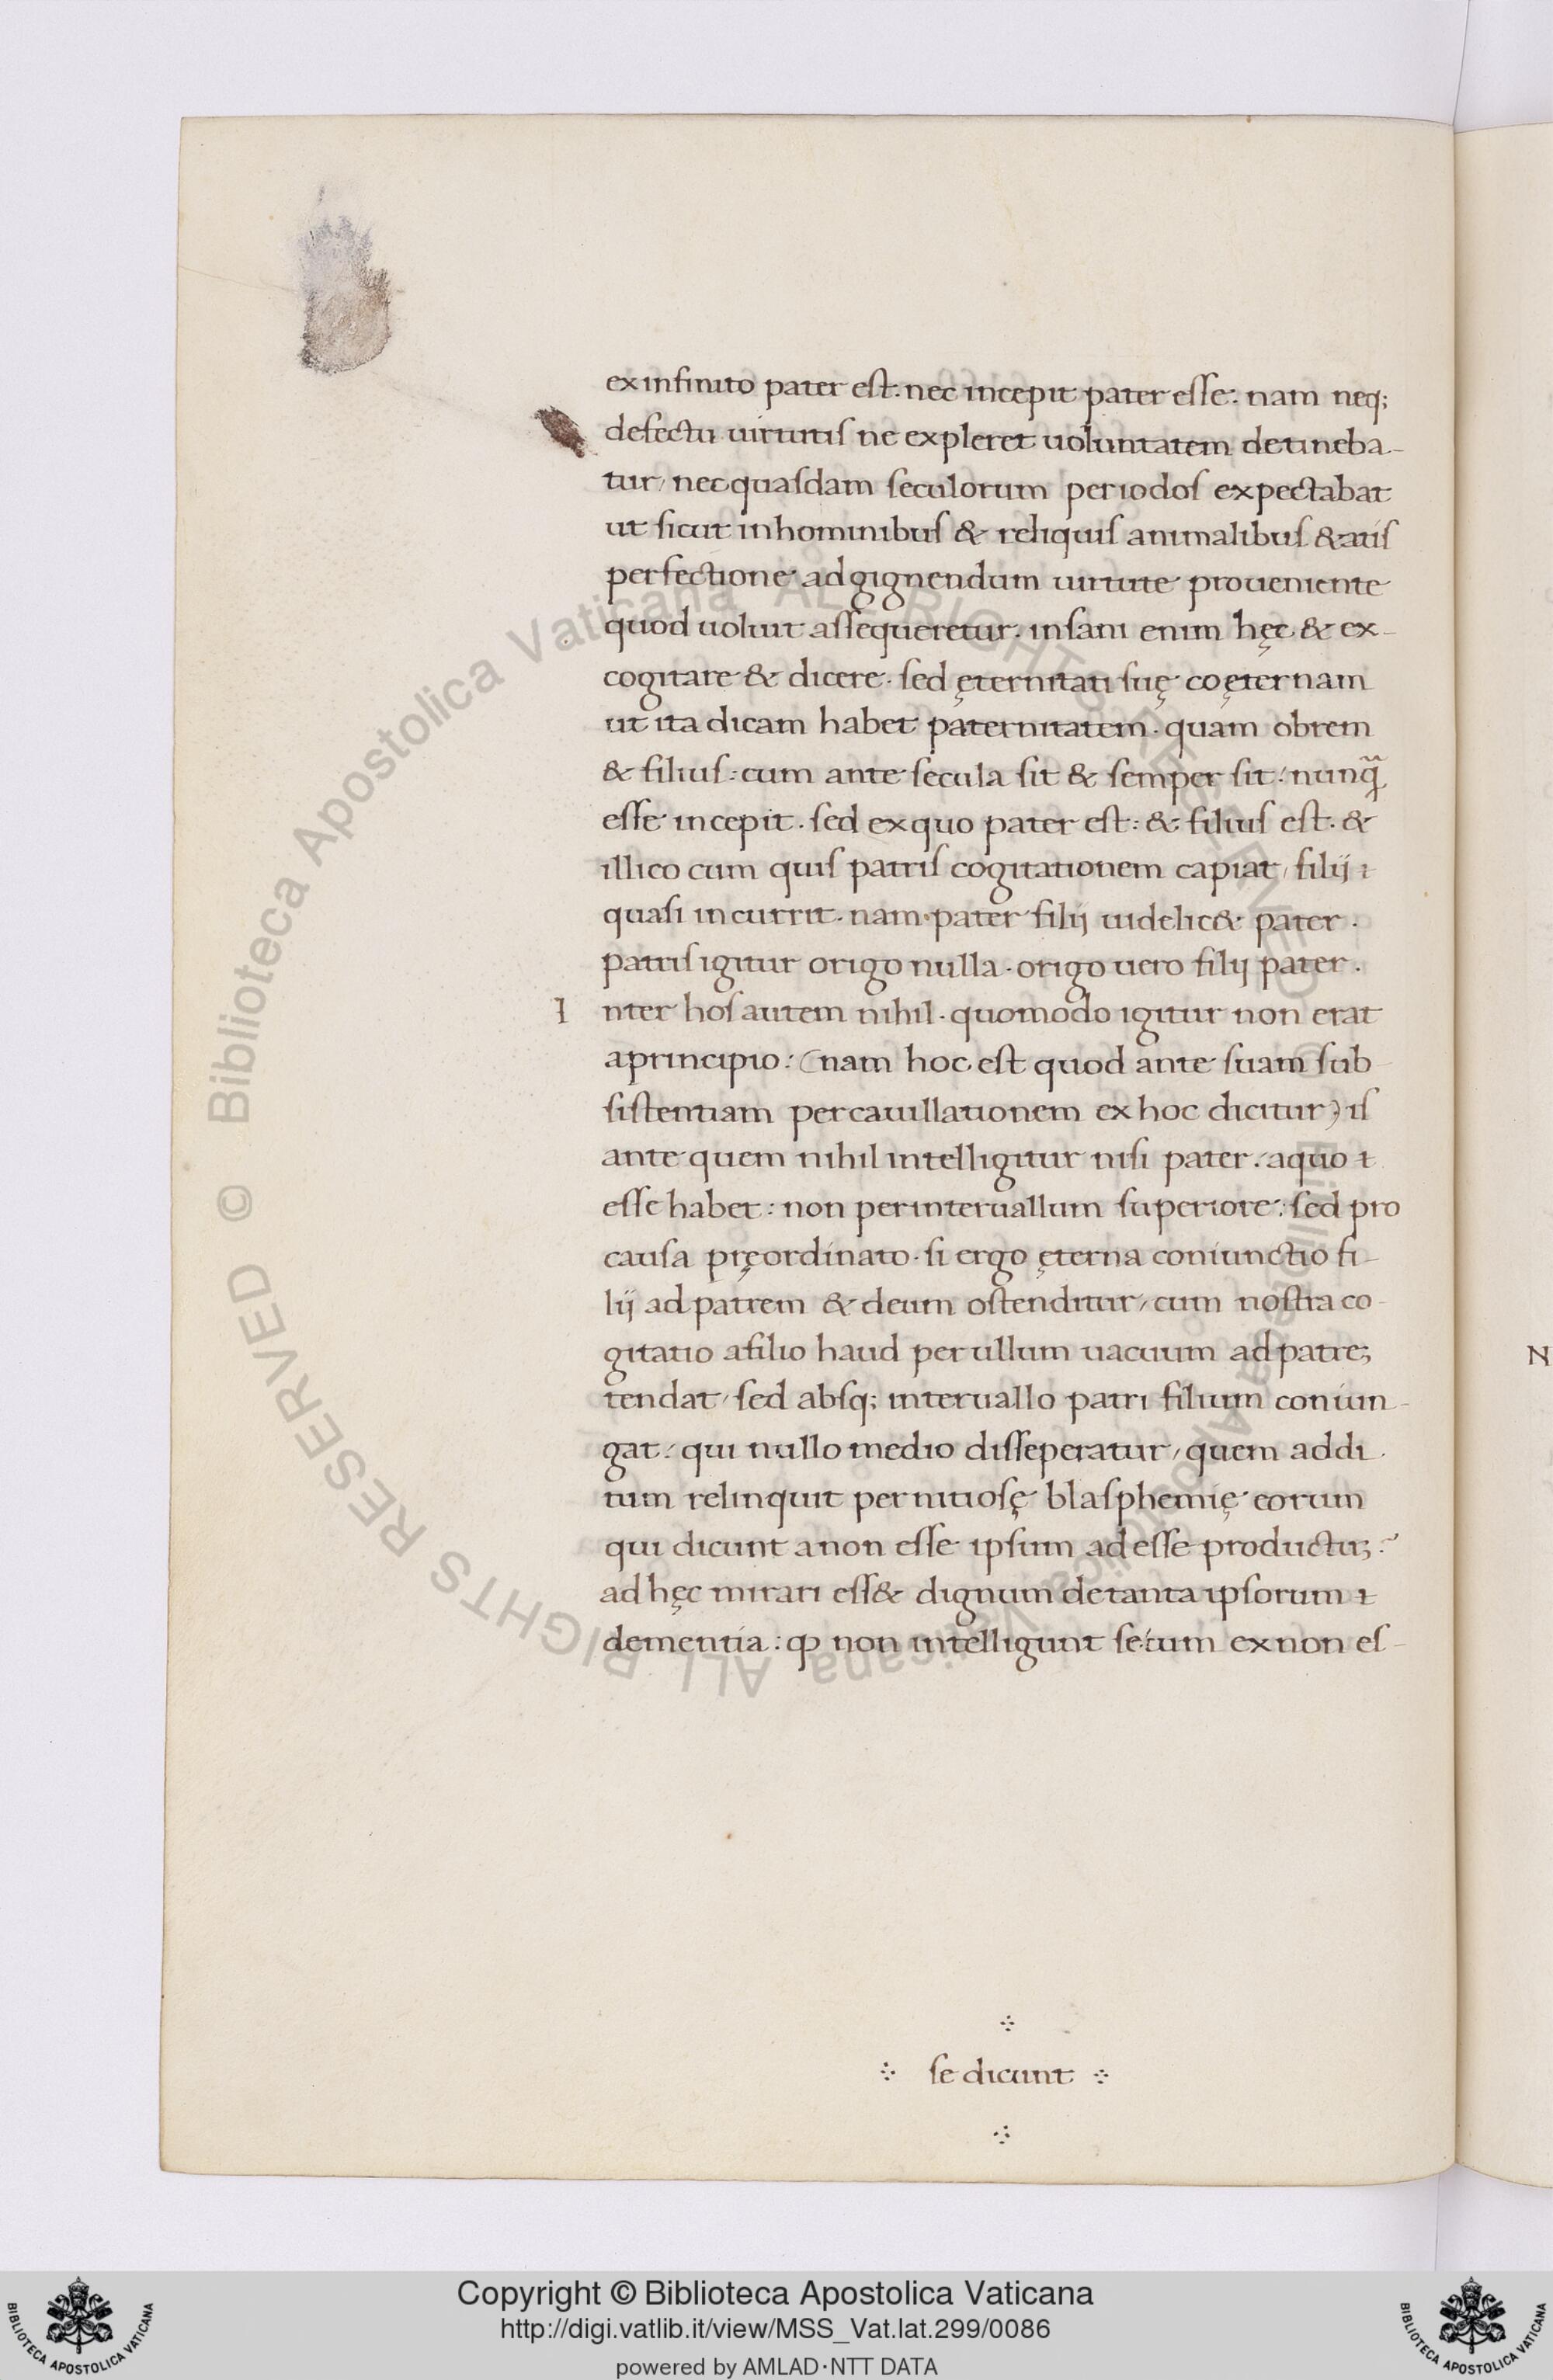 ex infinito pater est. nec incepit pater esse: nam neq;
defectu uirtutis ne expleret uoluntatem detineba-
tur, nec quasdam seculorum periodos expectabat
ut sicut in hominibus & reliquis animalibus &atis
perfectione ad gignendum uirtute proueniente
quod uoluit assequeretur. insani enim hęc & ex-
cogitare & dicere. sed ęternitati suę coęternam
ut ita dicam habet paternitatem. quam obrem
& filius: cum ante secula sit & semper sit: nunq̃
esse incepit. sed ex quo pater est: & filius est. &
illico cum quis patris cogitationem capiat, filij
quasi incurrit. nam pater filij uidelic& pater.
patris igitur origo nulla. origo uero filij pater.
Inter hos autem nihil. quomodo igitur non erat
a principio: (nam hoc est quod ante suam sub
sistentiam per cauillationem ex hoc dicitur) is
ante quem nihil intelligitur nisi pater: a quo
esse habet: non per interuallum superiore: sed pro
causa pręordinato. si ergo ęterna coniunctio fi-
lij ad patrem & deum ostenditur, cum nostra co-
gitatio a filio haud per ullum uacuum ad patre;
tendat, sed absq; interuallo patri filium coniun-
gat: qui nullo medio disseperatur, quem addi-
tum relinquit pernitiosę blasphemię eorum
qui dicunt a non esse ipsum ad esse productu;?
ad hęc mirari ess& dignum de tanta ipsorum
dementia: ꝙ non intelligunt se: cum ex non es-
se dicunt
N
Biblioteca Apostolica Vaticana ALL RIGHTS RESERVED ©
Biblioteca Apostolica Vaticana ALL RIGHTS RESERVED ©
Copyright © Biblioteca Apostolica Vaticana
http://digi.vatlib.it/view/MSS_Vat.lat.299/0086
powered by AMLAD·NTT DATA
BIBLIOTECA APOSTOLICA VATICANA
BIBLIOTECA APOSTOLICA VATICANA